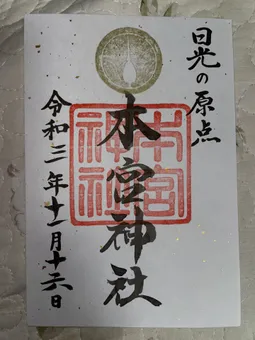 日光の原点
本宮神社
本宮
神社
令和二年十一月十六日